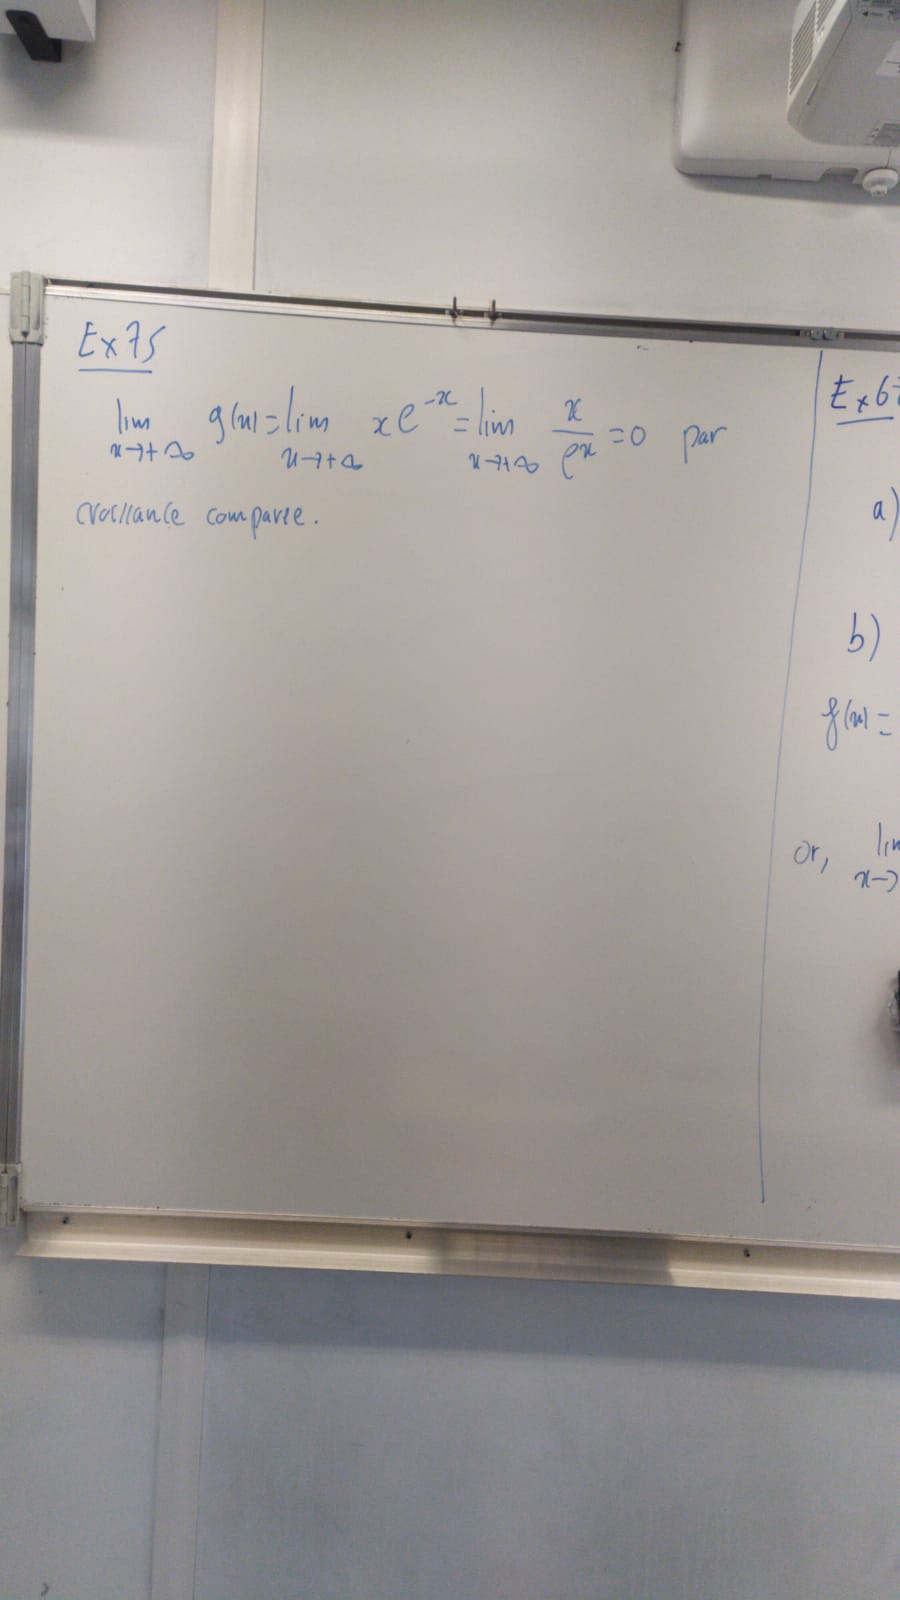 Ex 75
lim x→+∞ g(x) = lim x→+∞ x e^{-x} = lim x→+∞ x/e^x = 0 par
croissance comparée.
Ex 67
a)
b)
f(x) =
or, lim x→